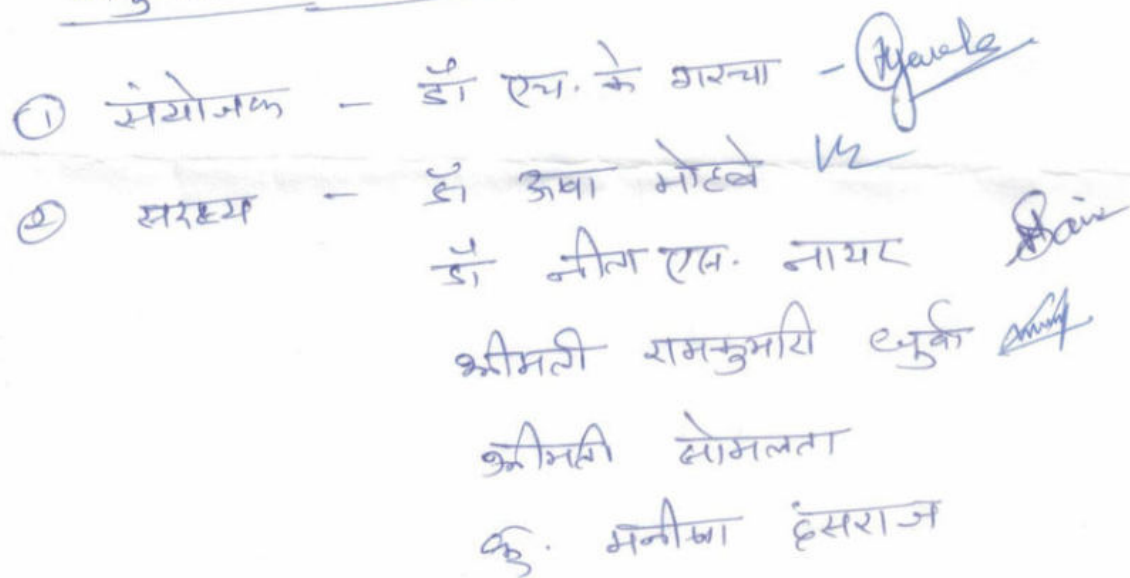 ① संयोजक - डॉ एच. के गरचा -
② सदस्य - डॉ ऊषा मोहबे
डॉ नीता एस. नायर
श्रीमती रामकुमारी धुर्वे
श्रीमती सोमलता
कु. मनीषा हंसराज